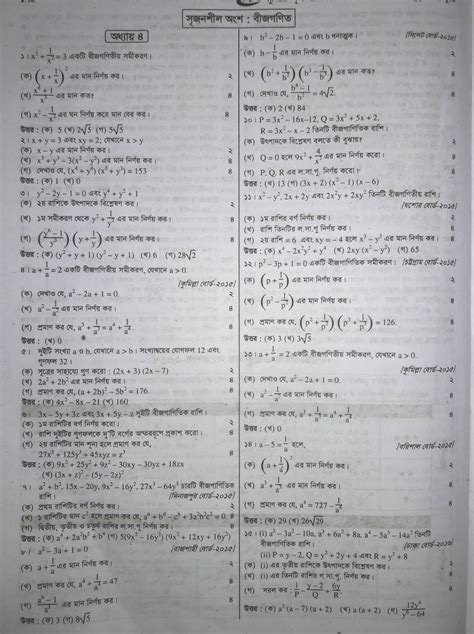 সৃজনশীল অংশ : বীজগণিত
অধ্যায় ৪
১। x² + 1/x² = 3 একটি বীজগণিতীয় সমীকরণ।
(ক) (x + 1/x)² এর মান নির্ণয় কর। ২
(খ) এর মান কত? ৪
(গ) এর মান নির্ণয় করে মান বের কর। ৪
উত্তর : (ক) 5 (খ) 2√5 (গ) 5√5
২। x + y = 3 এবং xy = 2; যেখানে x > y
(ক) x − y এর মান নির্ণয় কর। ২
(খ) x³ + y³ − 3(x² − y²) এর মান নির্ণয় কর। ৪
(গ) দেখাও যে, (x⁴ + y⁴) (x³ + y³) = 153 ৪
উত্তর : (ক) 1 (খ) 0
৩। y² − 2y − 1 = 0 এবং y⁴ + y² + 1
(ক) ২য় রাশিকে উৎপাদকে বিশ্লেষণ কর। ২
(খ) ১ম সমীকরণ থেকে এর মান নির্ণয় কর। ৪
(গ) এর মান নির্ণয় কর। ৪
উত্তর : (ক) (y² + y + 1) (y² − y + 1) (খ) 6 (গ) 28√2
৪। a + 1/a = 2 একটি বীজগণিতীয় সমীকরণ, যেখানে a > 0.
[কুমিল্লা বোর্ড-২০১৫]
(ক) দেখাও যে, a² − 2a + 1 = 0. ২
(খ) এর মান নির্ণয় কর। ৪
(গ) প্রমাণ কর যে, ৪
উত্তর : (খ) 0
৫। দুইটি সংখ্যা a ও b, যেখানে a > b। সংখ্যাদ্বয়ের যোগফল 12 এবং
গুণফল 32।
(ক) সূত্রের সাহায্যে গুণ করো : (2x + 3) (2x − 7) ২
(খ) 2a² + 2b² এর মান নির্ণয় কর। ৪
(গ) প্রমাণ কর যে, (a + 2b)² − 5b² = 176 ৪
উত্তর : (ক) 4x² − 8x − 21 (খ) 160
৬। 3x − 5y + 3z এবং 3x + 5y − z দুইটি বীজগাণিতিক রাশি।
(ক) ১ম রাশিটির বর্গ নির্ণয় করো। ২
(খ) রাশি দুইটির গুণফলকে দু'টি বর্গের অন্তররূপে প্রকাশ করো। ৪
(গ) ২য় রাশিটির মান শূন্য হলে প্রমাণ কর যে, ৪
27x³ + 125y³ + 45xyz = z³
উত্তর : (ক) 9x² + 25y² + 9z² − 30xy − 30yz + 18zx
(খ) (3x + z)² − (5y − 2z)²
৭। a² + b², 15x − 20y, 9x² − 16y², 27x³ − 64y³ চারটি বীজগণিতিক
রাশি। [দিনাজপুর বোর্ড-২০১৫]
(ক) প্রথম রাশিটির বর্গ নির্ণয় করো। ২
(খ) ১ম রাশিটির মান c² হলে প্রমাণ কর যে, a⁶ + b⁶ − c⁶ + 3a²b²c² = 0. ৪
(গ) দ্বিতীয়, তৃতীয় ও চতুর্থ রাশির ল.সা.গু নির্ণয় কর। ৪
উত্তর : (ক) a⁴ + 2a²b² + b⁴ (গ) 5(9x² − 16y²) (9x² + 12xy + 16y²)
৮। a² − 3a + 1 = 0 [রাজশাহী বোর্ড-২০১৫]
(ক) a + 1/a এর মান নির্ণয় কর। ২
(খ) প্রমাণ কর যে, a⁴ + 1/a⁴ = 47 ৪
(গ) এর মান নির্ণয় কর। ৪
উত্তর : (ক) 3 (গ) 8√5
৯। b² − 2b − 1 = 0 এবং b ধনাত্মক। [সিলেট বোর্ড-২০১৫]
(ক) b − 1/b এর মান নির্ণয় কর। ২
(খ) এর মান নির্ণয় কর। ৪
(গ) দেখাও যে, = 4√2. ৪
উত্তর : (ক) 2 (খ) 84
১০। P = 3x² − 16x − 12, Q = 3x² + 5x + 2,
R = 3x² − x − 2 তিনটি বীজগাণিতিক রাশি।
(ক) উৎপাদকে বিশ্লেষণ বলতে কী বুঝায়? ২
(খ) Q = 0 হলে এর মান নির্ণয় করো। ৪
(গ) P, Q, R এর ল.সা.গু. নির্ণয় করো। ৪
উত্তর : (খ) 13 (গ) (3x + 2) (x² − 1) (x − 6)
১১। x² − 2y², 2x + 2y এবং 2x²y + 2xy² তিনটি বীজগণিতীয় রাশি।
[যশোর বোর্ড-২০১৫]
(ক) ১ম রাশির বর্গ নির্ণয় কর। ২
(খ) রাশি তিনটির ল.সা.গু নির্ণয় কর। ৪
(গ) ২য় রাশি = 6 এবং xy = −4 হলে x³ − y³ এর মান নির্ণয় কর। ৪
১২। p² − 3p + 1 = 0 একটি বীজগণিতিক সমীকরণ। [চট্টগ্রাম বোর্ড-২০১৫]
(ক) এর মান নির্ণয় কর। ২
(খ) এর মান নির্ণয় কর। ৪
(গ) প্রমাণ কর যে, (p² + 1/p²) (p³ + 1/p³) = 126. ৪
উত্তর : (ক) 3 (খ) 3√5
১৩। a + 1/a = 2 একটি বীজগণিতীয় সমীকরণ, যেখানে a > 0.
[কুমিল্লা বোর্ড-২০১৫]
(ক) দেখাও যে, a² − 2a + 1 = 0. ২
(খ) এর মান নির্ণয় কর। ৪
(গ) প্রমাণ কর যে, ৪
উত্তর : (খ) 0
১৪। a − 5 = 1/a হলে, [বরিশাল বোর্ড-২০১৫]
(ক) (a + 1/a)² এর মান নির্ণয় কর। ২
(খ) এর মান নির্ণয় কর। ৪
(গ) প্রমাণ কর যে, a⁴ = 727 − 1/a⁴ ৪
উত্তর : (ক) 29 (খ) 26√29
১৫। (i) a³ − 3a² − 10a, a³ + 6a² + 8a, a⁴ − 5a³ − 14a² তিনটি
বীজগাণিতিক রাশি। [ঢাকা বোর্ড-২০১৫]
(ii) P = y − 2, Q = y² + 2y + 4 এবং R = y³ + 8
(ক) (i) এর তৃতীয় রাশিকে উৎপাদকে বিশ্লেষণ কর। ২
(খ) (i) এর তিনটি রাশির গ.সা.গু. নির্ণয় কর। ৪
(গ) সরল কর : 1/P − (y − 2)/Q + 6y/R ৪
উত্তর : (ক) a² (a − 7) (a + 2) (খ) a (a + 2)